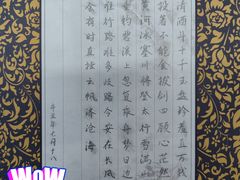 清酒斗十千玉盘珍羞直万钱
投箸不能食拔剑四顾心茫然
河冰塞川将登太行雪满
垂钓碧溪上忽复乘舟梦日边
难行路难多歧路今安在长风
会有时直挂云帆济沧海
辛丑年七月十八
WOW